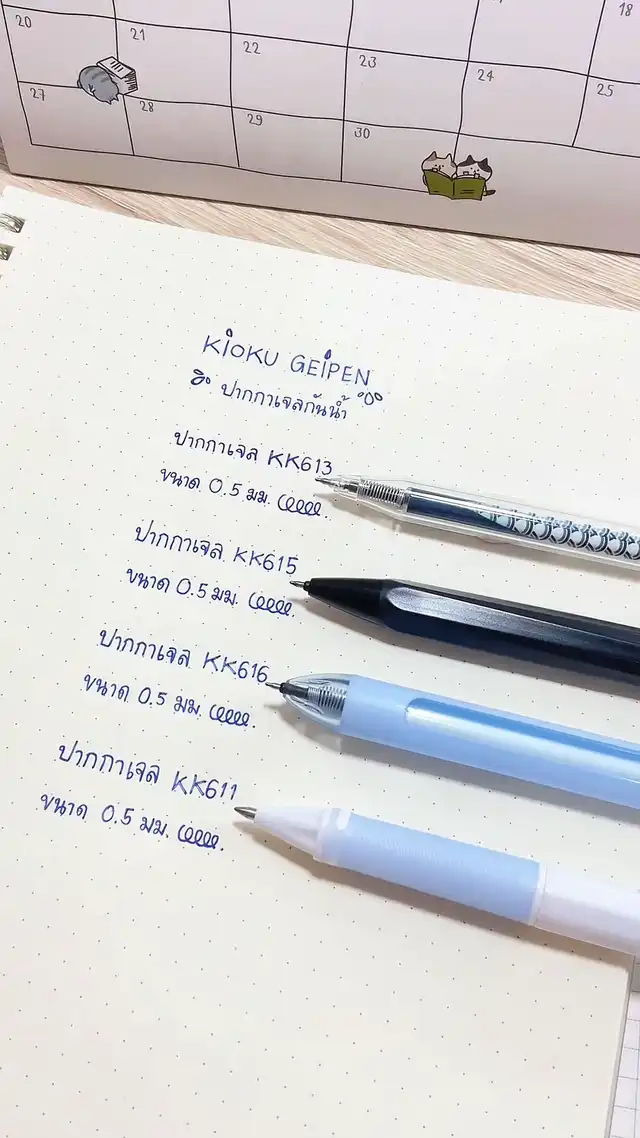 18
20
21
22
23
24
25
27
28
29
30
KIOKU GEIPEN
ปากกาเจลกันน้ำ
ปากกาเจล KK613
ขนาด 0.5 มม.
ปากกาเจล KK615
ขนาด 0.5 มม.
ปากกาเจล KK616
ขนาด 0.5 มม.
ปากกาเจล KK611
ขนาด 0.5 มม.